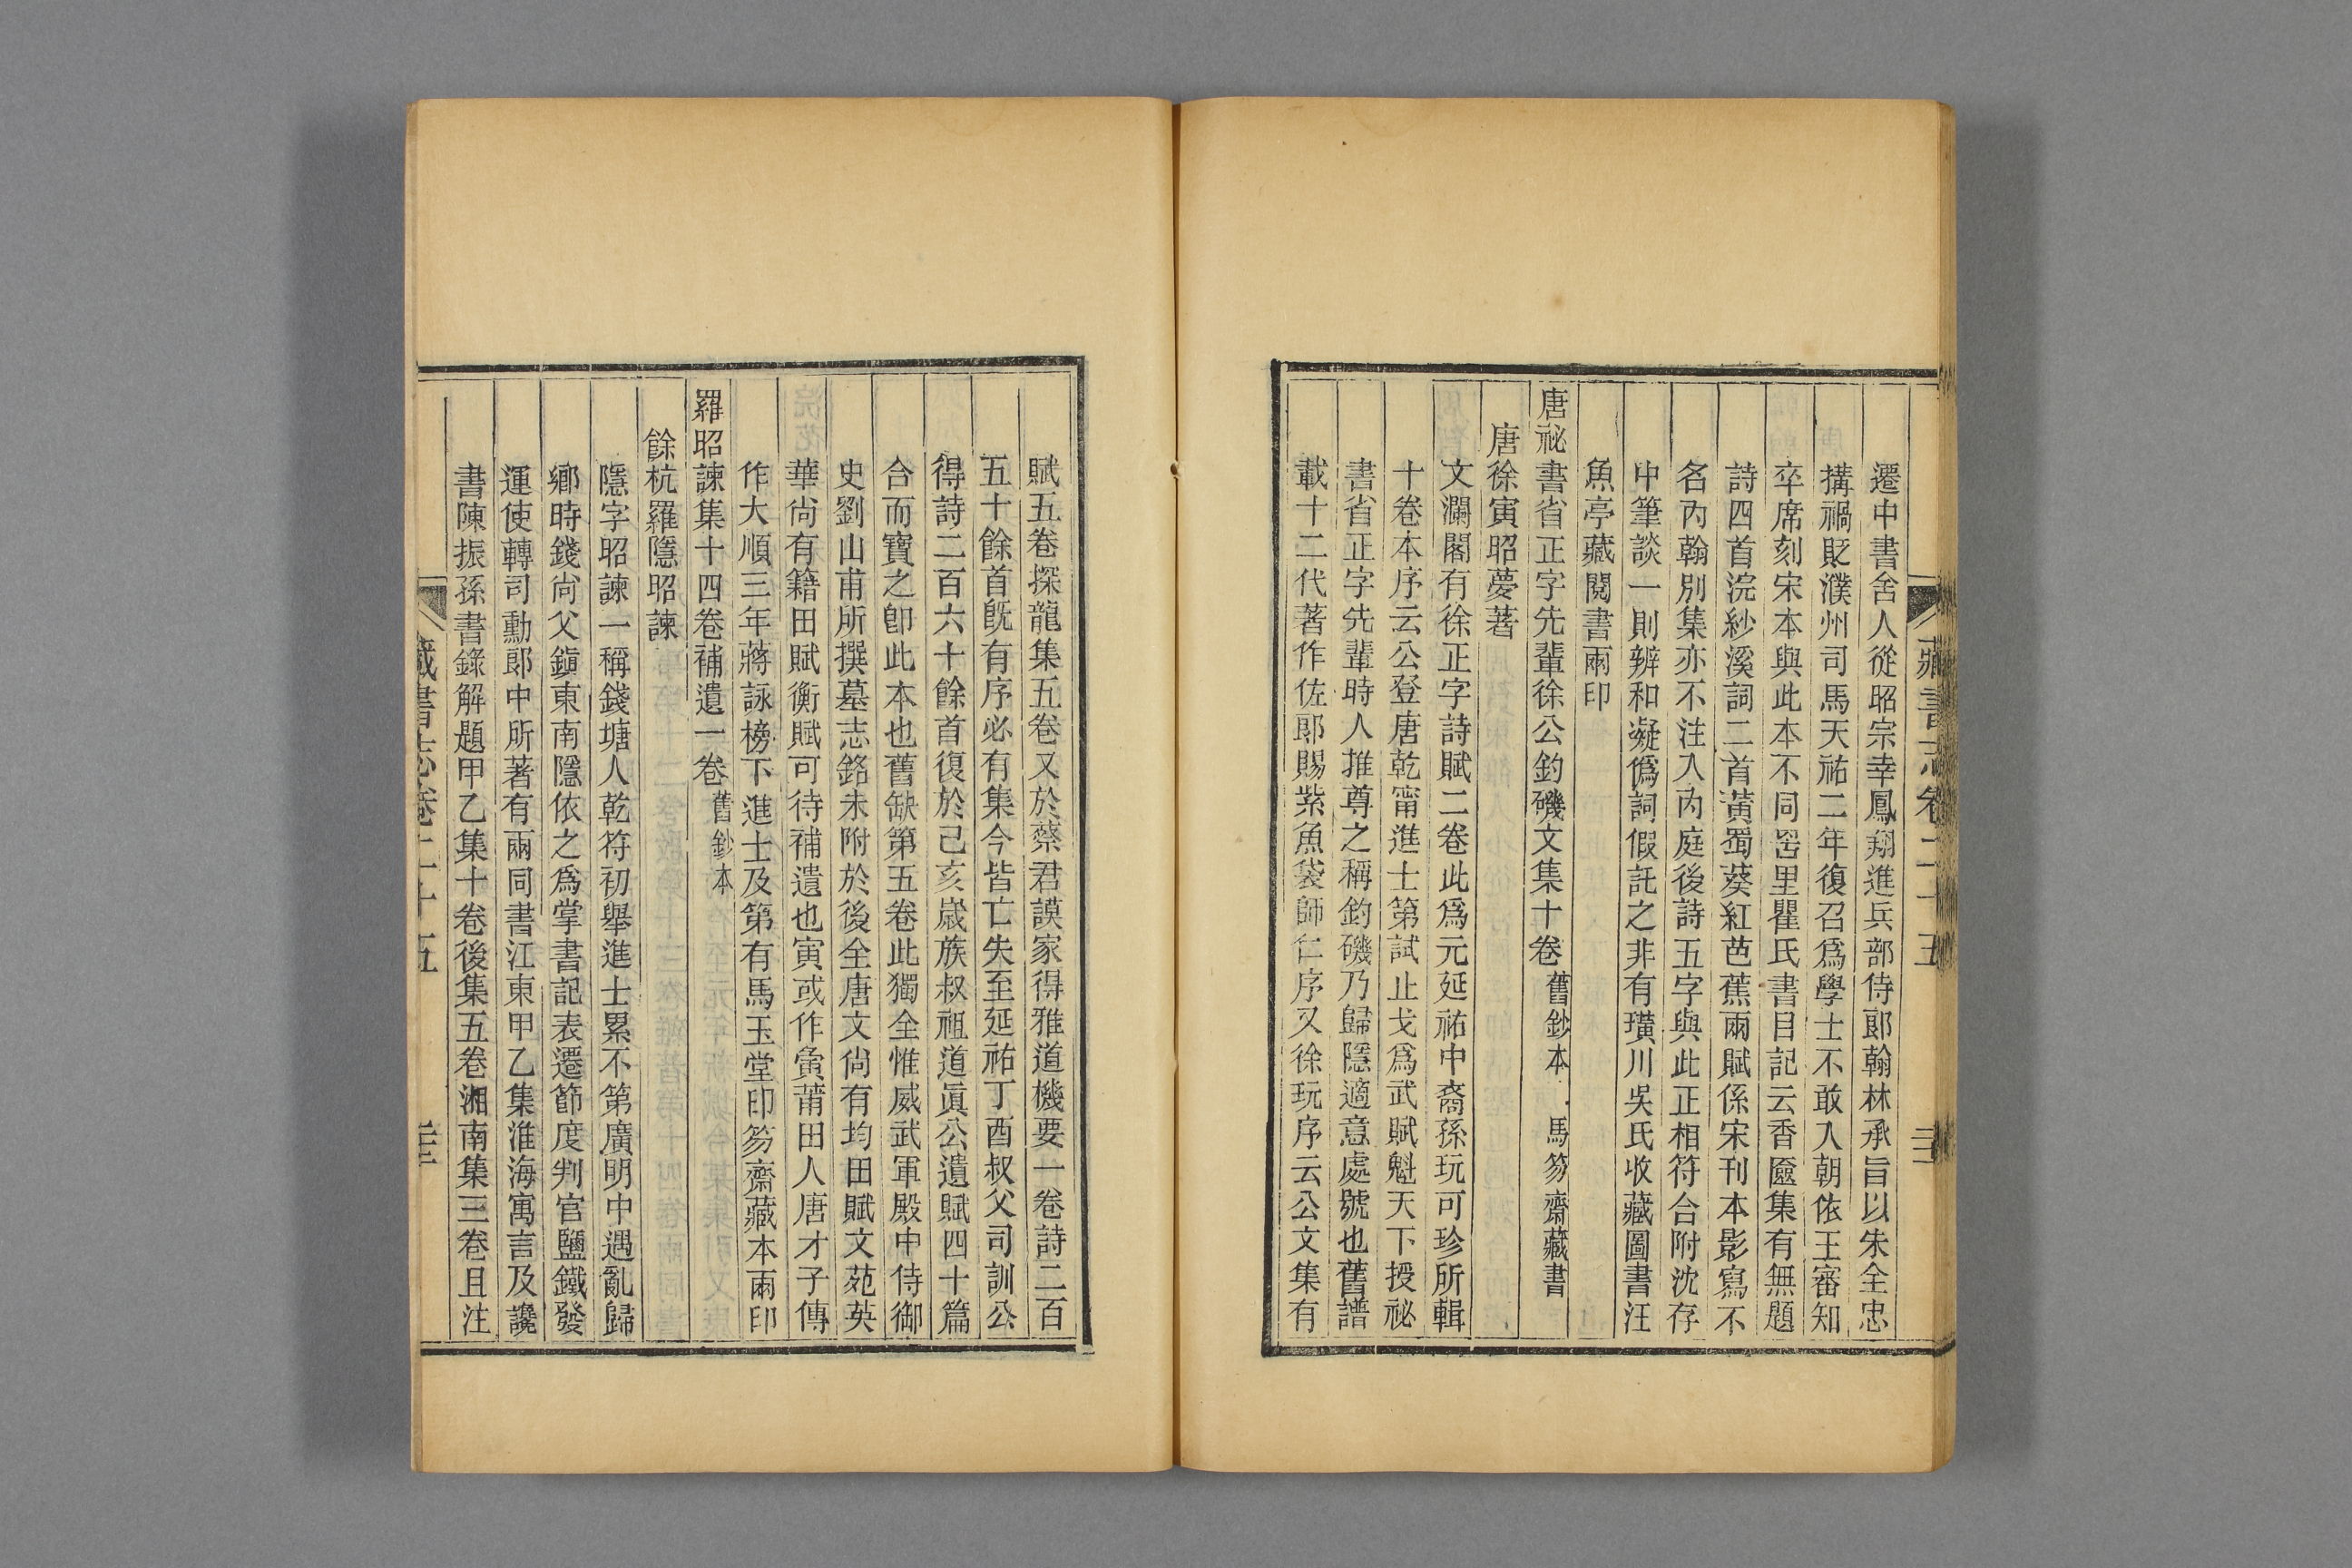 藏書志卷二十五
遷中書舍人從昭宗幸鳳翔進兵部侍郎翰林承旨以朱全忠
搆禍貶濮州司馬天祐二年復召爲學士不敢入朝依王審知
卒席刻宋本與此本不同罟里瞿氏書目記云香奩集有無題
詩四首浣紗溪詞二首黃蜀葵紅芭蕉兩賦係宋刊本影寫不
名內翰別集亦不注入內庭後詩五字與此正相符合附沈存
中筆談一則辨和凝僞詞假託之非有璜川吳氏收藏圖書汪
魚亭藏閱書兩印
唐祕書省正字先輩徐公釣磯文集十卷 舊鈔本 馬笏齋藏書
唐徐寅昭夢著
文瀾閣有徐正字詩賦二卷此爲元延祐中裔孫玩可珍所輯
十卷本序云公登唐乾甯進士第試止戈爲武賦魁天下授祕
書省正字先輩時人推尊之稱釣磯乃歸隱適意處號也舊譜
載十二代著作佐郎賜紫魚袋師仁序又徐玩序云公文集有
賦五卷探龍集五卷又於蔡君謨家得雅道機要一卷詩二百
五十餘首旣有序必有集今皆亡失至延祐丁酉叔父司訓公
得詩二百六十餘首復於己亥嵗族叔祖道眞公遺賦四十篇
合而寶之卽此本也舊缺第五卷此獨全惟威武軍殿中侍御
史劉山甫所撰墓志銘未附於後全唐文尙有均田賦文苑英
華尙有籍田賦衡賦可待補遺也寅或作夤莆田人唐才子傳
作大順三年蔣詠榜下進士及第有馬玉堂印笏齋藏本兩印
羅昭諫集十四卷補遺一卷 舊鈔本
餘杭羅隱昭諫
隱字昭諫一稱錢塘人乾符初舉進士累不第廣明中遇亂歸
鄉時錢尙父鎭東南隱依之爲掌書記表遷節度判官鹽鐵發
運使轉司勳郎中所著有兩同書江東甲乙集淮海寓言及讒
書陳振孫書錄解題甲乙集十卷後集五卷湘南集三卷且注
藏書志卷二十五